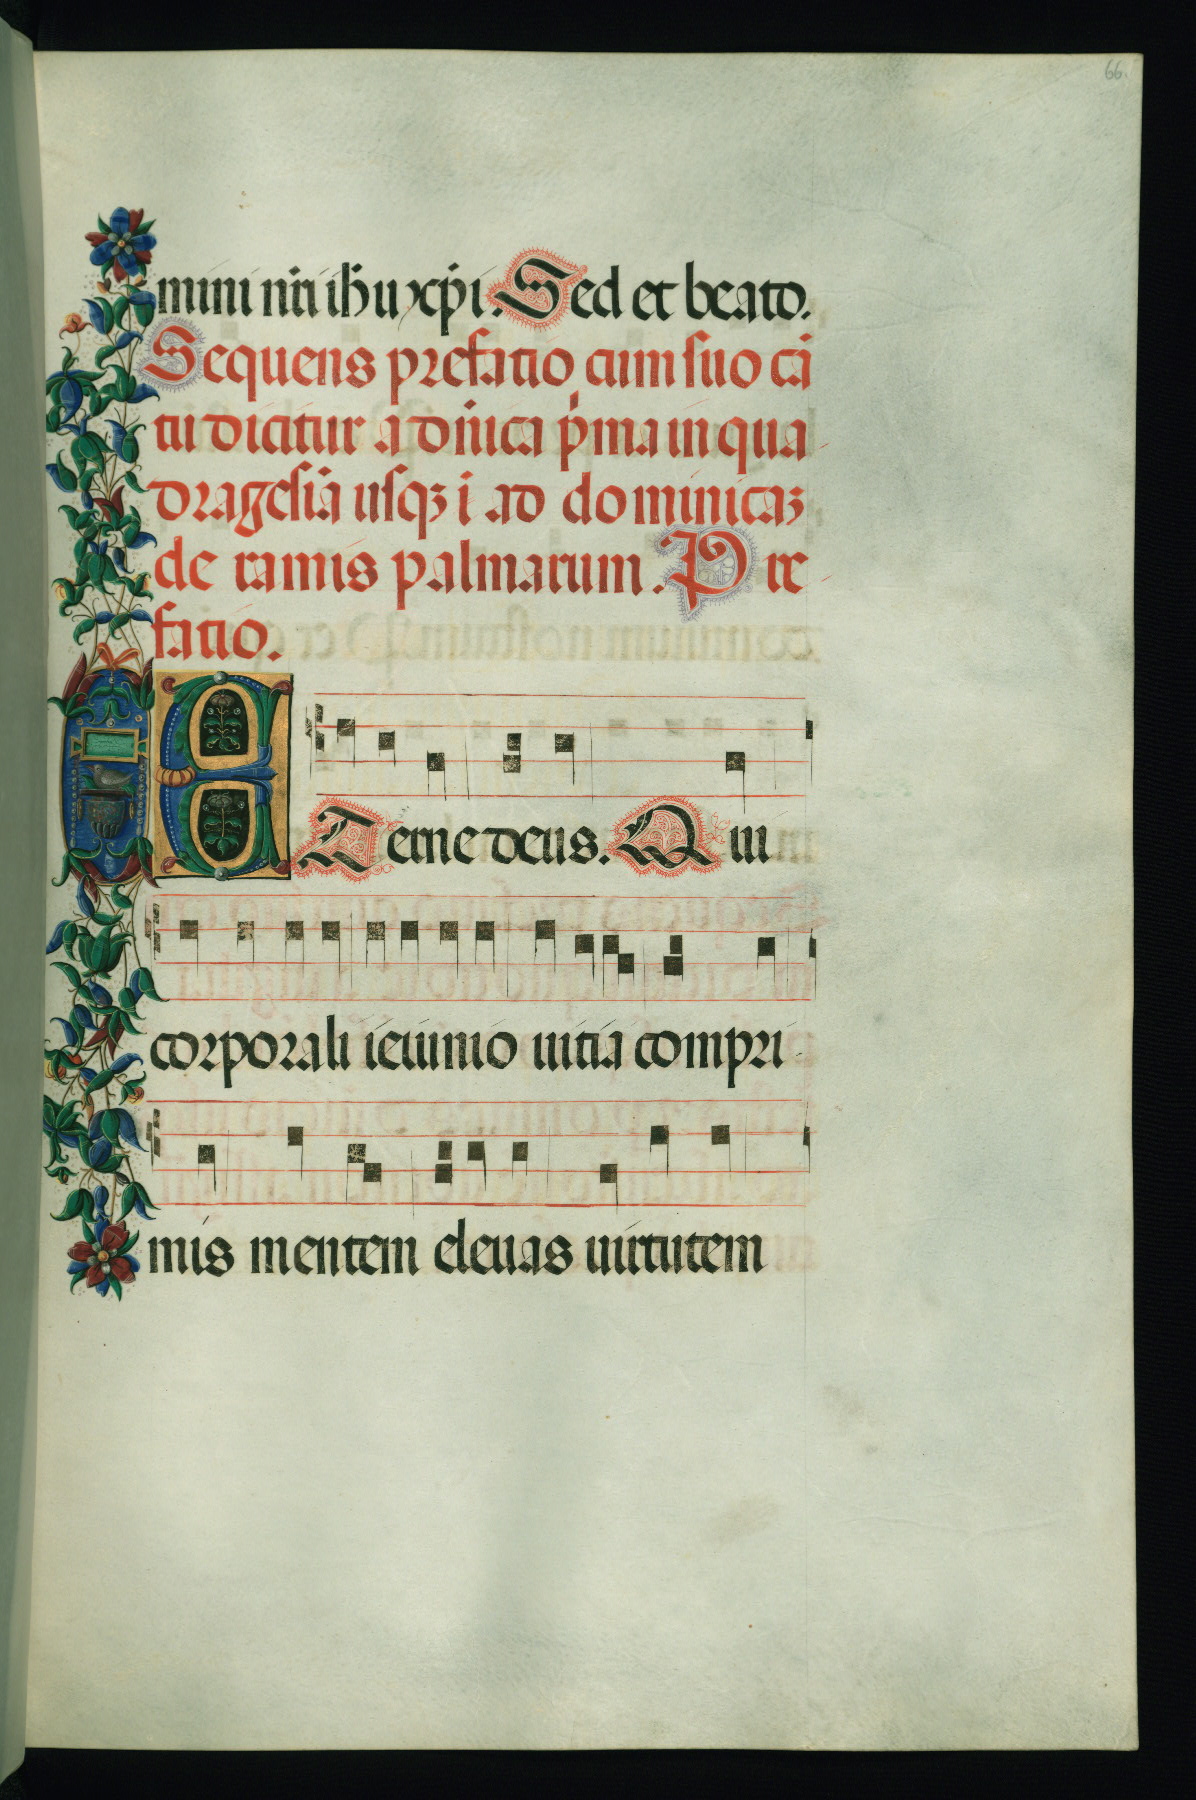 66.
mini nr̃i ih̃u xp̃i. Sed et beato.
Sequens prefatio cum suo cã
tu dicitur a dñica p̃ma in qua
dragesĩa usq3 i ad dominica3
de ramis palmarum. Pre
fatio.
E Terne deus. Qui
corporali ieiunio uitia compri
mis mentem eleuas uirtutem